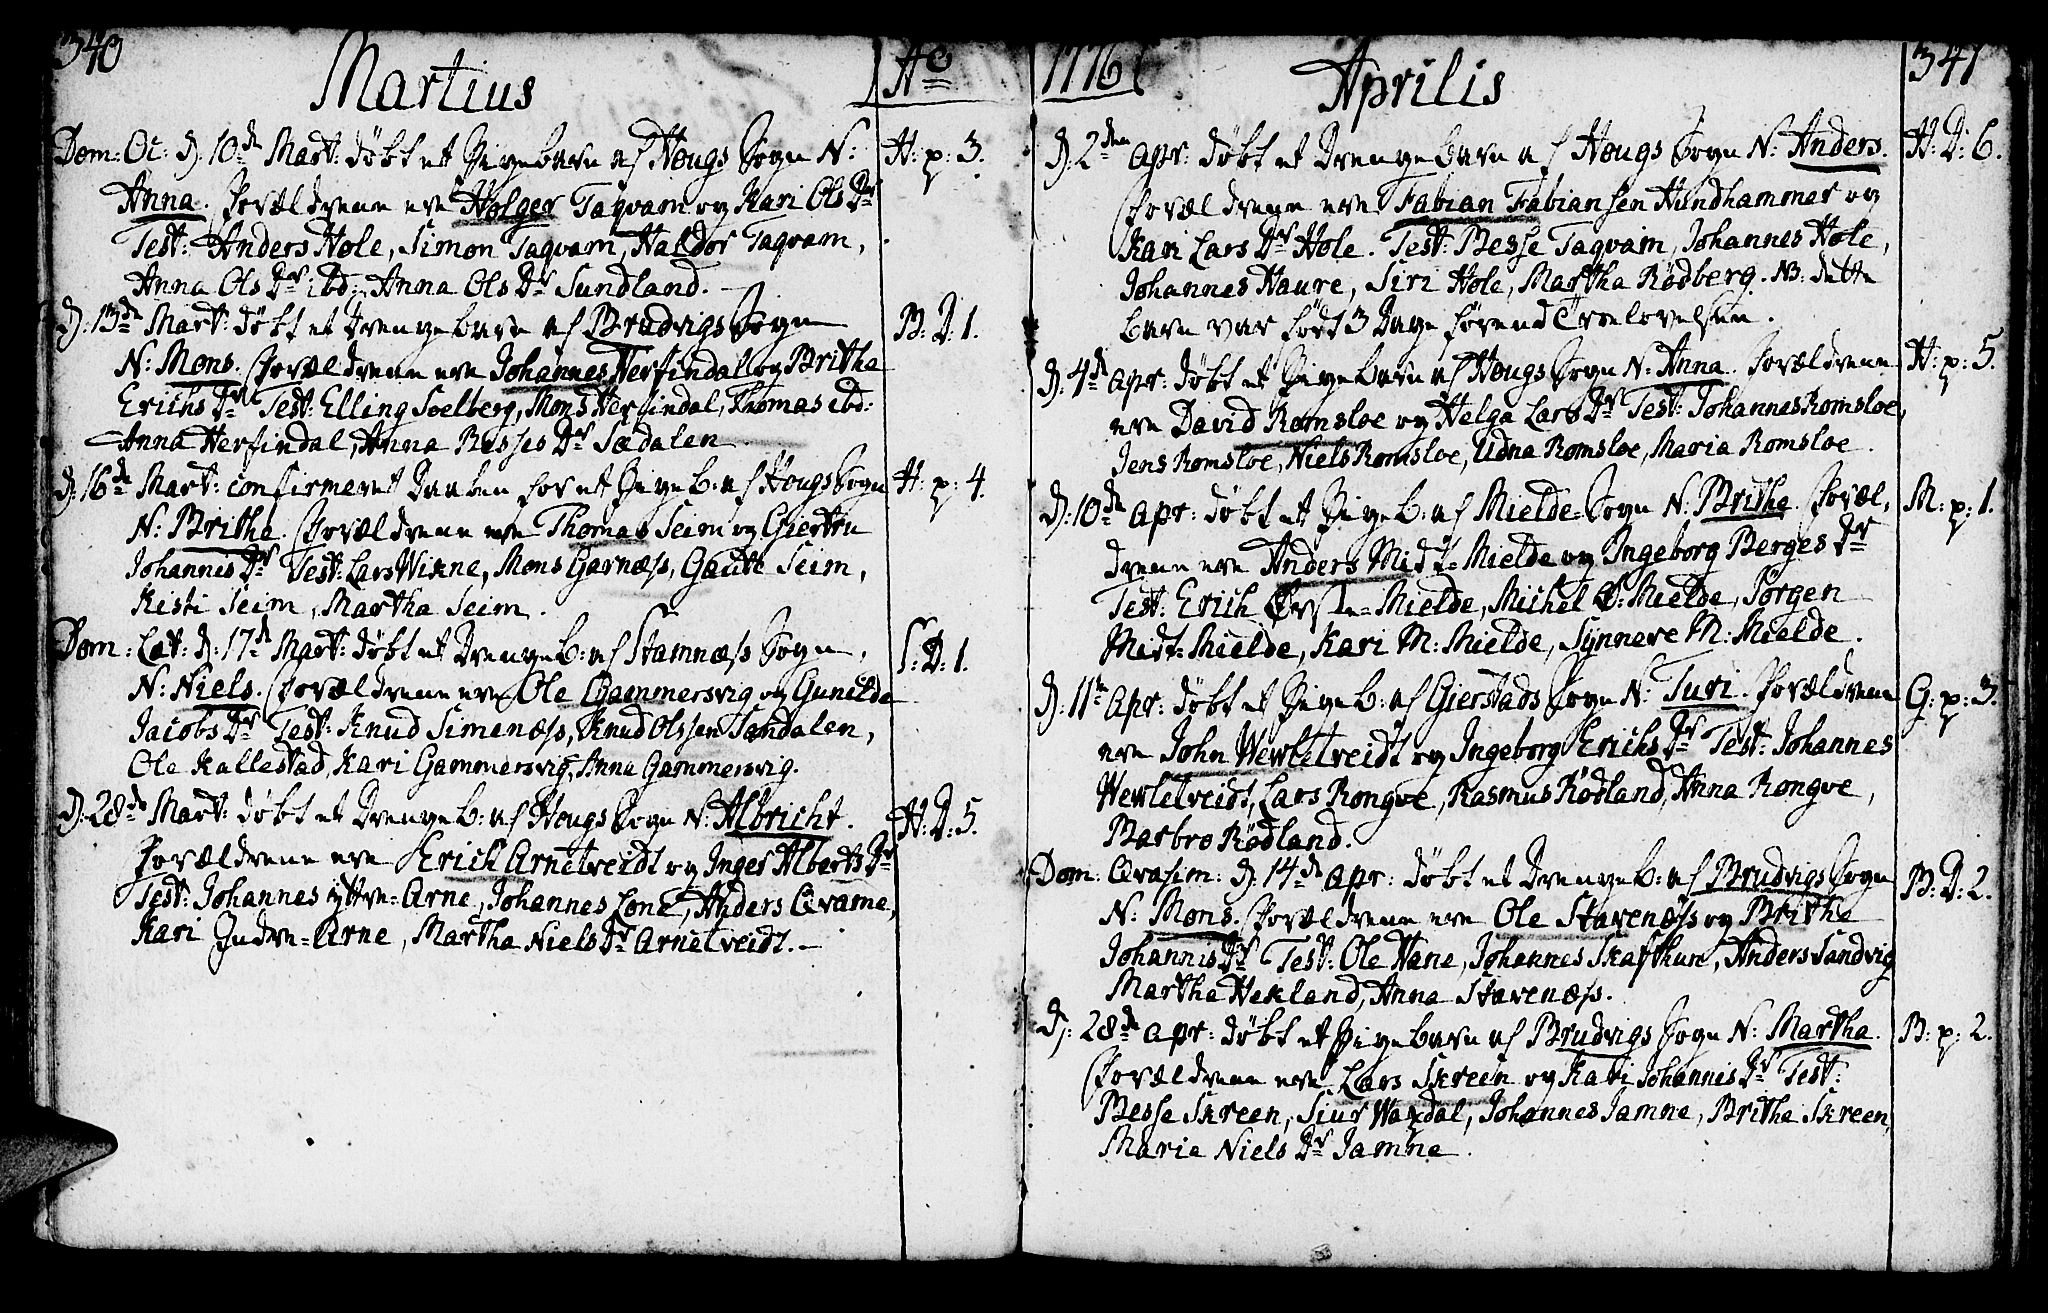 340
Martius
Ao
Dom: Oc: d. 10de Mart: döbt et Pigebarn af Hougs Sogn N: H: p: 3.
Anna. Forældrene ere Holger Tagvam og Kari Ols Dr
Test: Anders Hole, Simon Tagvam, Haldor Tagvam,
Anna Ols Dr ibd:, Anna Ols Dr Sundland.
d. 13de Mart: döbt et Drengebarn af Brudvigs Sogn B: D: 1.
N: Mons. Forældrene ere Johannes Herfindal og Britha
Erichs Dr Test: Elling Soelberg, Mons Herfindal, Thomas ibd:
Anna Herfindal, Anna Besses Dr Sædalen
d. 16de Mart: confirmeret Daaben for et Pigeb: af Hougs Sogn H: p: 4.
N: Britha. Forældrene ere Thomas Seim og Giertru
Johannis Dr Test: Lars Wikne, Mons Garnæss, Gaute Seim,
Kisti Seim, Martha Seim.
Dom: Læt: d. 17de Mart: döbt et Drengeb: af Stamnæss Sogn, S: D: 1.
N: Niels. Forældrene ere Ole Gammersvig og Gunilde
Jacobs Dr Test: Knud Simenæss, Knud Olssen Sandalen,
Ole Kallestad, Kari Gammersvig, Anna Gammersvig.
d. 28de Mart: döbt et Drengeb: af Hougs Sogn N: Albricht. H: D: 5.
Forældrene ere Erich Arnetveidt og Inger Alberts Dr
Test: Johannes yttre-Arne, Johannes Lone, Anders Qvame,
Kari Indre-Arne, Martha Niels Dr Arnetveidt.
1776
Aprilis
341
d. 2den Apr: döbt et Drengebarn af Hougs Sogn N: Anders. H: D: 6.
Forældrene ere Fabian Fabiansen Hundhammer og
Kari Lars Dr Hole. Test: Besse Tagvam, Johannes Hole,
Johannes Haure, Siri Hole, Martha Rödberg. NB: dette
Barn var födt 3 Dage förend Troelovelsen.
d. 4de Apr: döbt et Pigebarn af Hougs Sogn N: Anna. Forældrene H: p: 5.
ere David Romsloe og Helga Lars Dr Test: Johannes Romsloe,
Jens Romsloe, Niels Romsloe, Udna Romsloe, Maria Romsloe.
d. 10de Apr: döbt et Pigeb: af Mielde-Sogn N: Britha. Foræl, M: p: 1.
drene ere Anders Midt-Mielde og Ingeborg Berges Dr
Test: Erich Örste-Mielde, Michel Ö: Mielde, Jörgen
Midt-Mielde, Kari M: Mielde, Synneve M: Mielde.
d. 11te Apr: döbt et Pigeb: af Gierstads Sogn N: Turi. Forældrene G: p: 3.
ere John Wewletveidt og Ingeborg Erichs Dr Test: Johannes
Wewletveidt, Lars Rongve, Rasmus Rödland, Anna Rongve,
Barbro Rödland.
Dom: Qvasim: d. 14de Apr: döbt et Drengeb: af Brudvigs Sogn B: D: 2.
N: Mons. Forældrene ere Ole Stavenæss og Britha
Johannis Dr Test: Ole Hane, Johannes Skafthun, Anders Sandvig
Martha Hekland, Anna Stavenæss.
d. 28de Apr: döbt et Pigebarn af Brudvigs Sogn N: Martha. B: p: 2.
Forældrene ere Lars Skreen og Kari Johannis Dr Test:
Besse Skreen, Siur Waxdal, Johannes Jamne, Britha Skreen,
Marie Niels Dr Jamne.